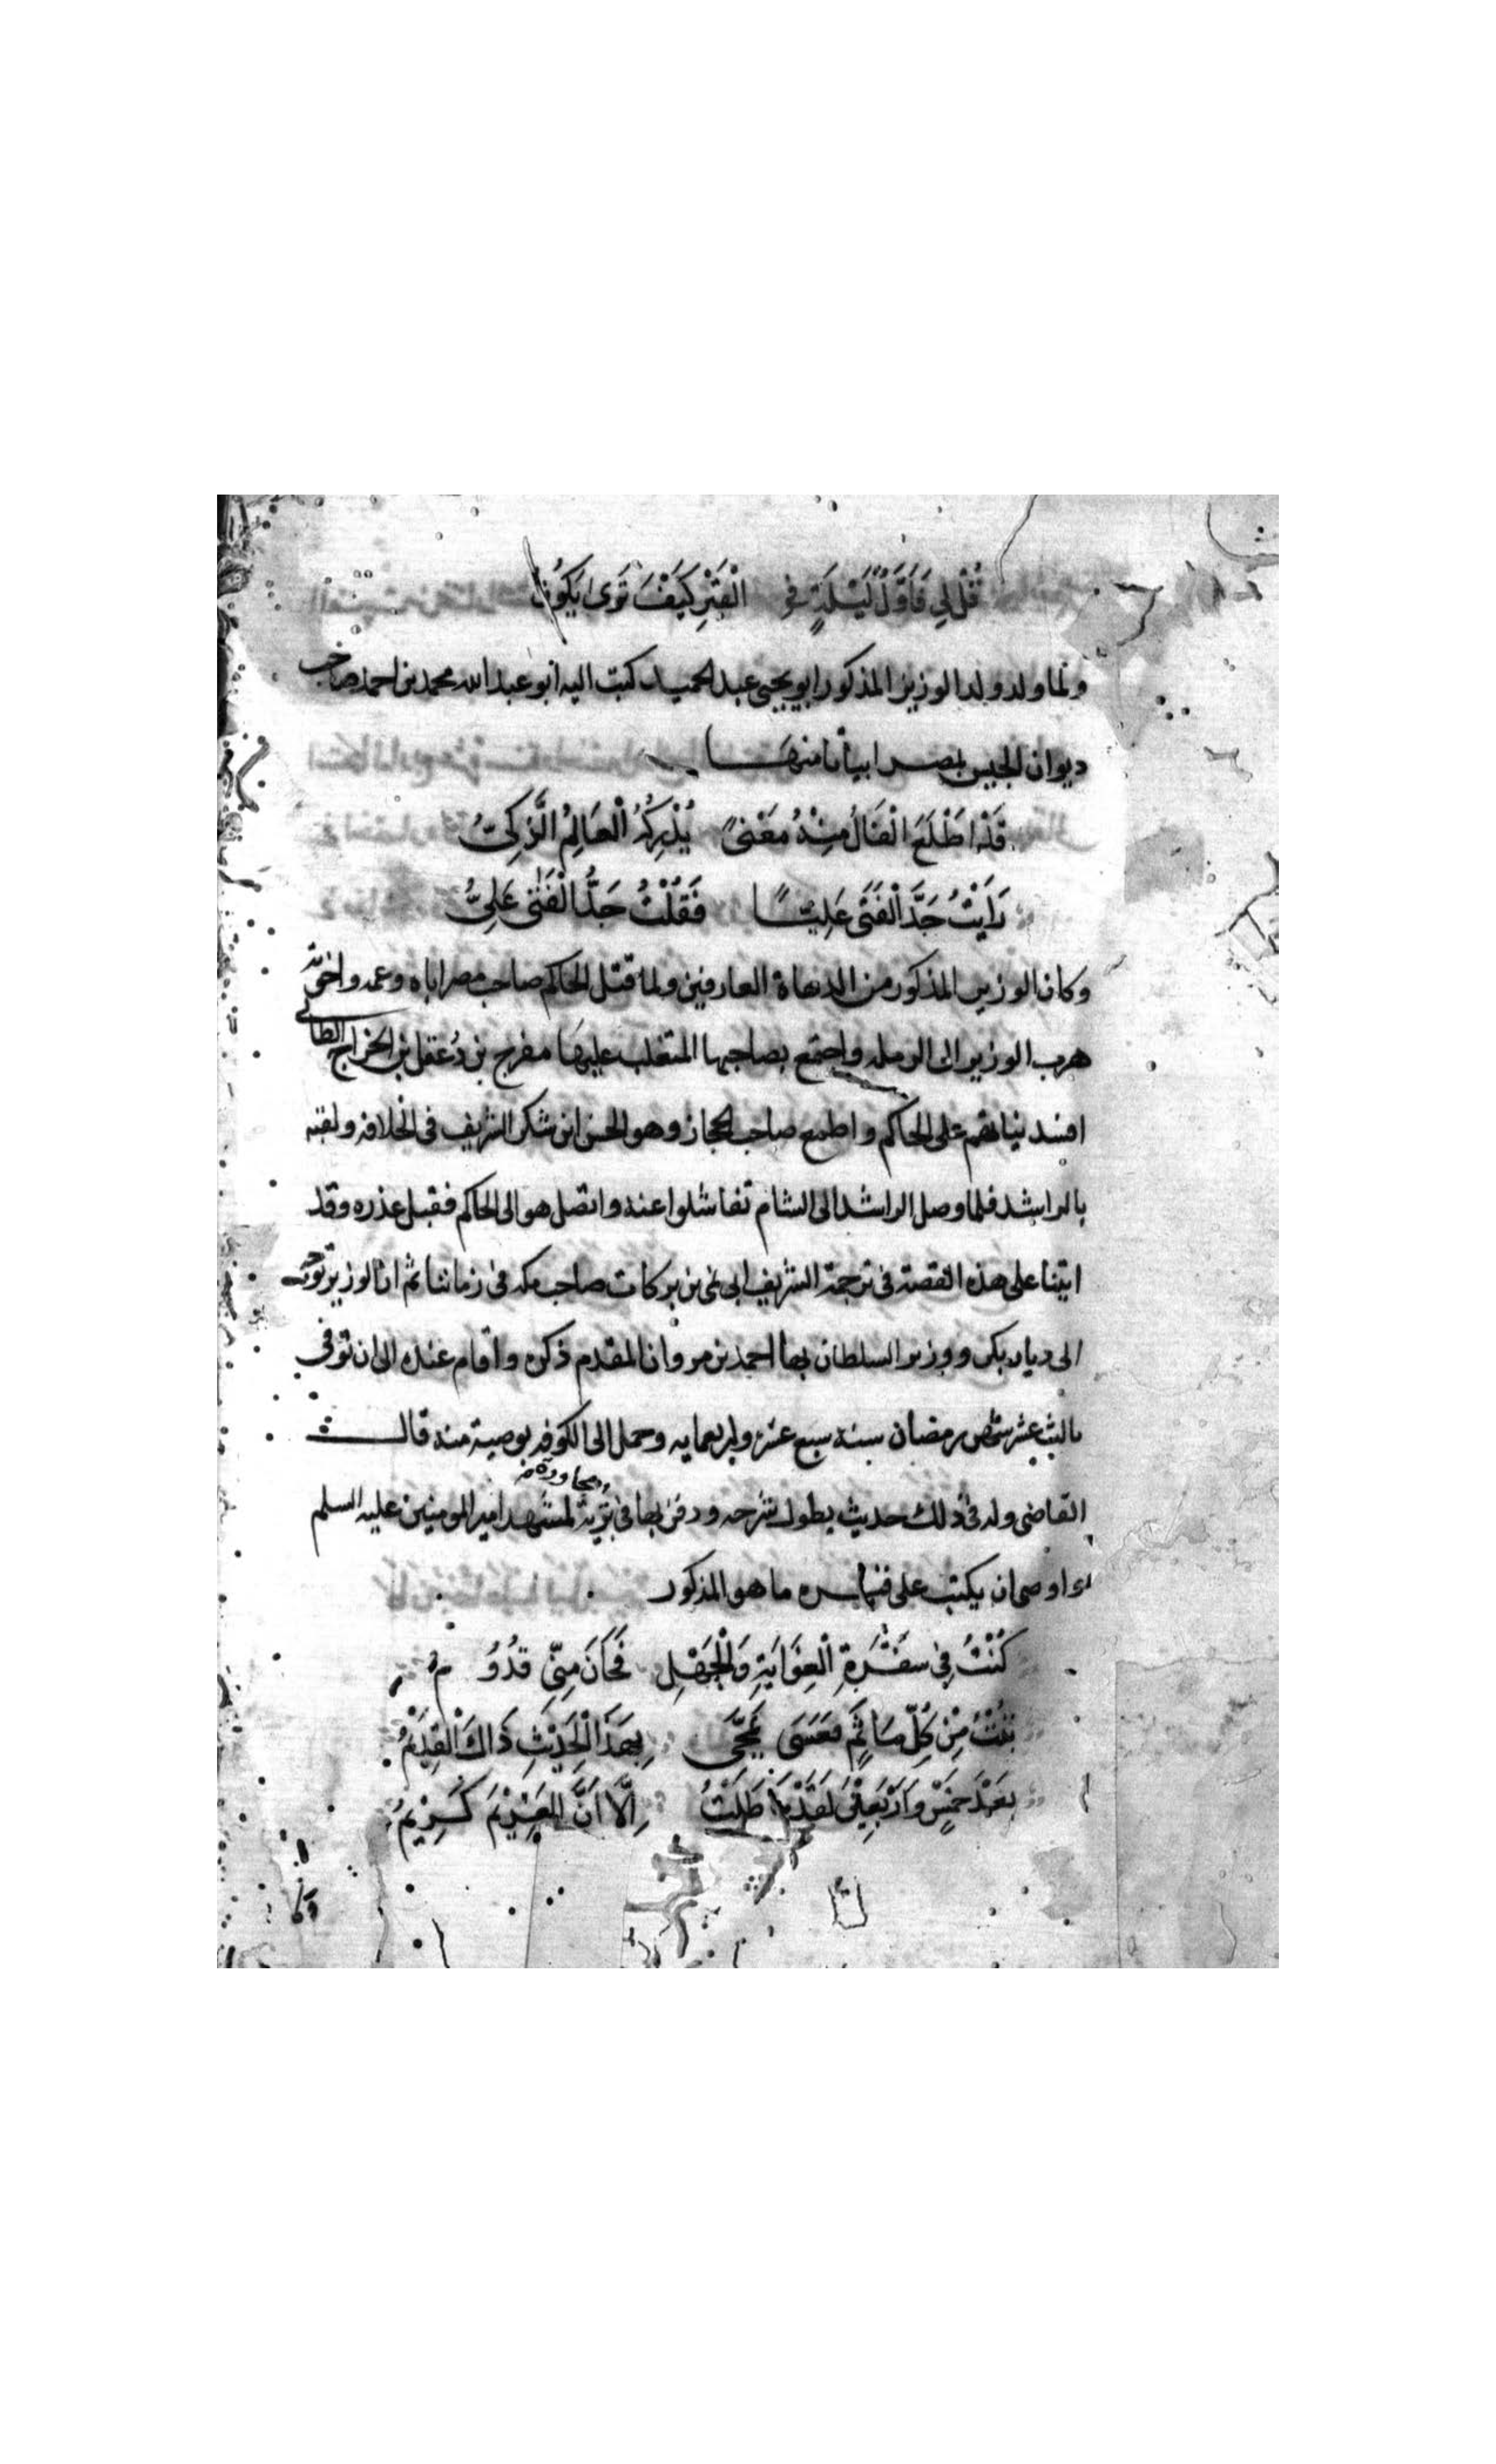 قُلْ لِي فَاَوَّلُ لَيْلَةٍ فِي الْقَبْرِ كَيْفَ تَرَى يَكُونُ
ولما ولد ولد الوزير المذكور ابو يحيى عبد الحميد كتب اليه ابو عبد الله محمد بن احمد صاحب
ديوان الجيش بمصر ابياتا منها
قَدْ اطْلَعَ الْفَالُ مِنْهُ مَعْنىً يُدْرِكُهُ الْعَالِمُ الذَّكِيُّ
رَاَيْتُ جَدَّ الْفَتَى عَلِيّاً فَقُلْتُ جَدُّ الْفَتَى عَلِيُّ
وكان الوزير المذكور من الدهاة العارفين ولما قتل الحاكم صاحب مصر اباه وعمه واخوته
هرب الوزير الى الرمله واجتمع بصاحبها المتغلب عليها مفرج بن دُغفل بن الجراح الطائي
افسد نياتهم على الحاكم واطمع صاحب الحجاز وهو الحسن ابن شكر الشريف في الخلافه ولقبه
بالراشد فلما وصل الراشد الى الشام تفاشلوا عنه واتصل هو الى الحاكم فقبل عذره وقد
اتينا على هذه القصة في ترجمة الشريف ابي نمى بن بركات صاحب مكه في زماننا ثم ان الوزير توجه
الى ديار بكر ووزر السلطان بها احمد بن مروان المقدم ذكره واقام عنده الى ان توفى
ثالث عشر شهر رمضان سنة سبع عشر واربعمايه وحمل الى الكوفه بوصية منه قالـــت
مجاورة
القاضي وله في ذلك حديث يطول شرحه ودفن بها في تربة لمشهد امير المومنين عليه السلم
واوصى ان يكتب على قبره ما هو المذكور
كُنْتُ فِي سَفْرَةِ الْغِوَايَةِ وَالْجَهْلِ فَحَانَ مِنِّي قدُوُ م
تُبْتُ مِنْ كُلِّ مَاثَمٍ فعَسَى يُمْحَى بِهَذَا الْحَدِيْثِ ذَاكَ الْقِدَيْمُ
بَعْدَ خَمْسٍ وَاَرْبَعِيْنَ لَقَدْ مَا طَلَتْ اِلَّا اَنَّ الْغَرِيْمَ كَرِيْمُ